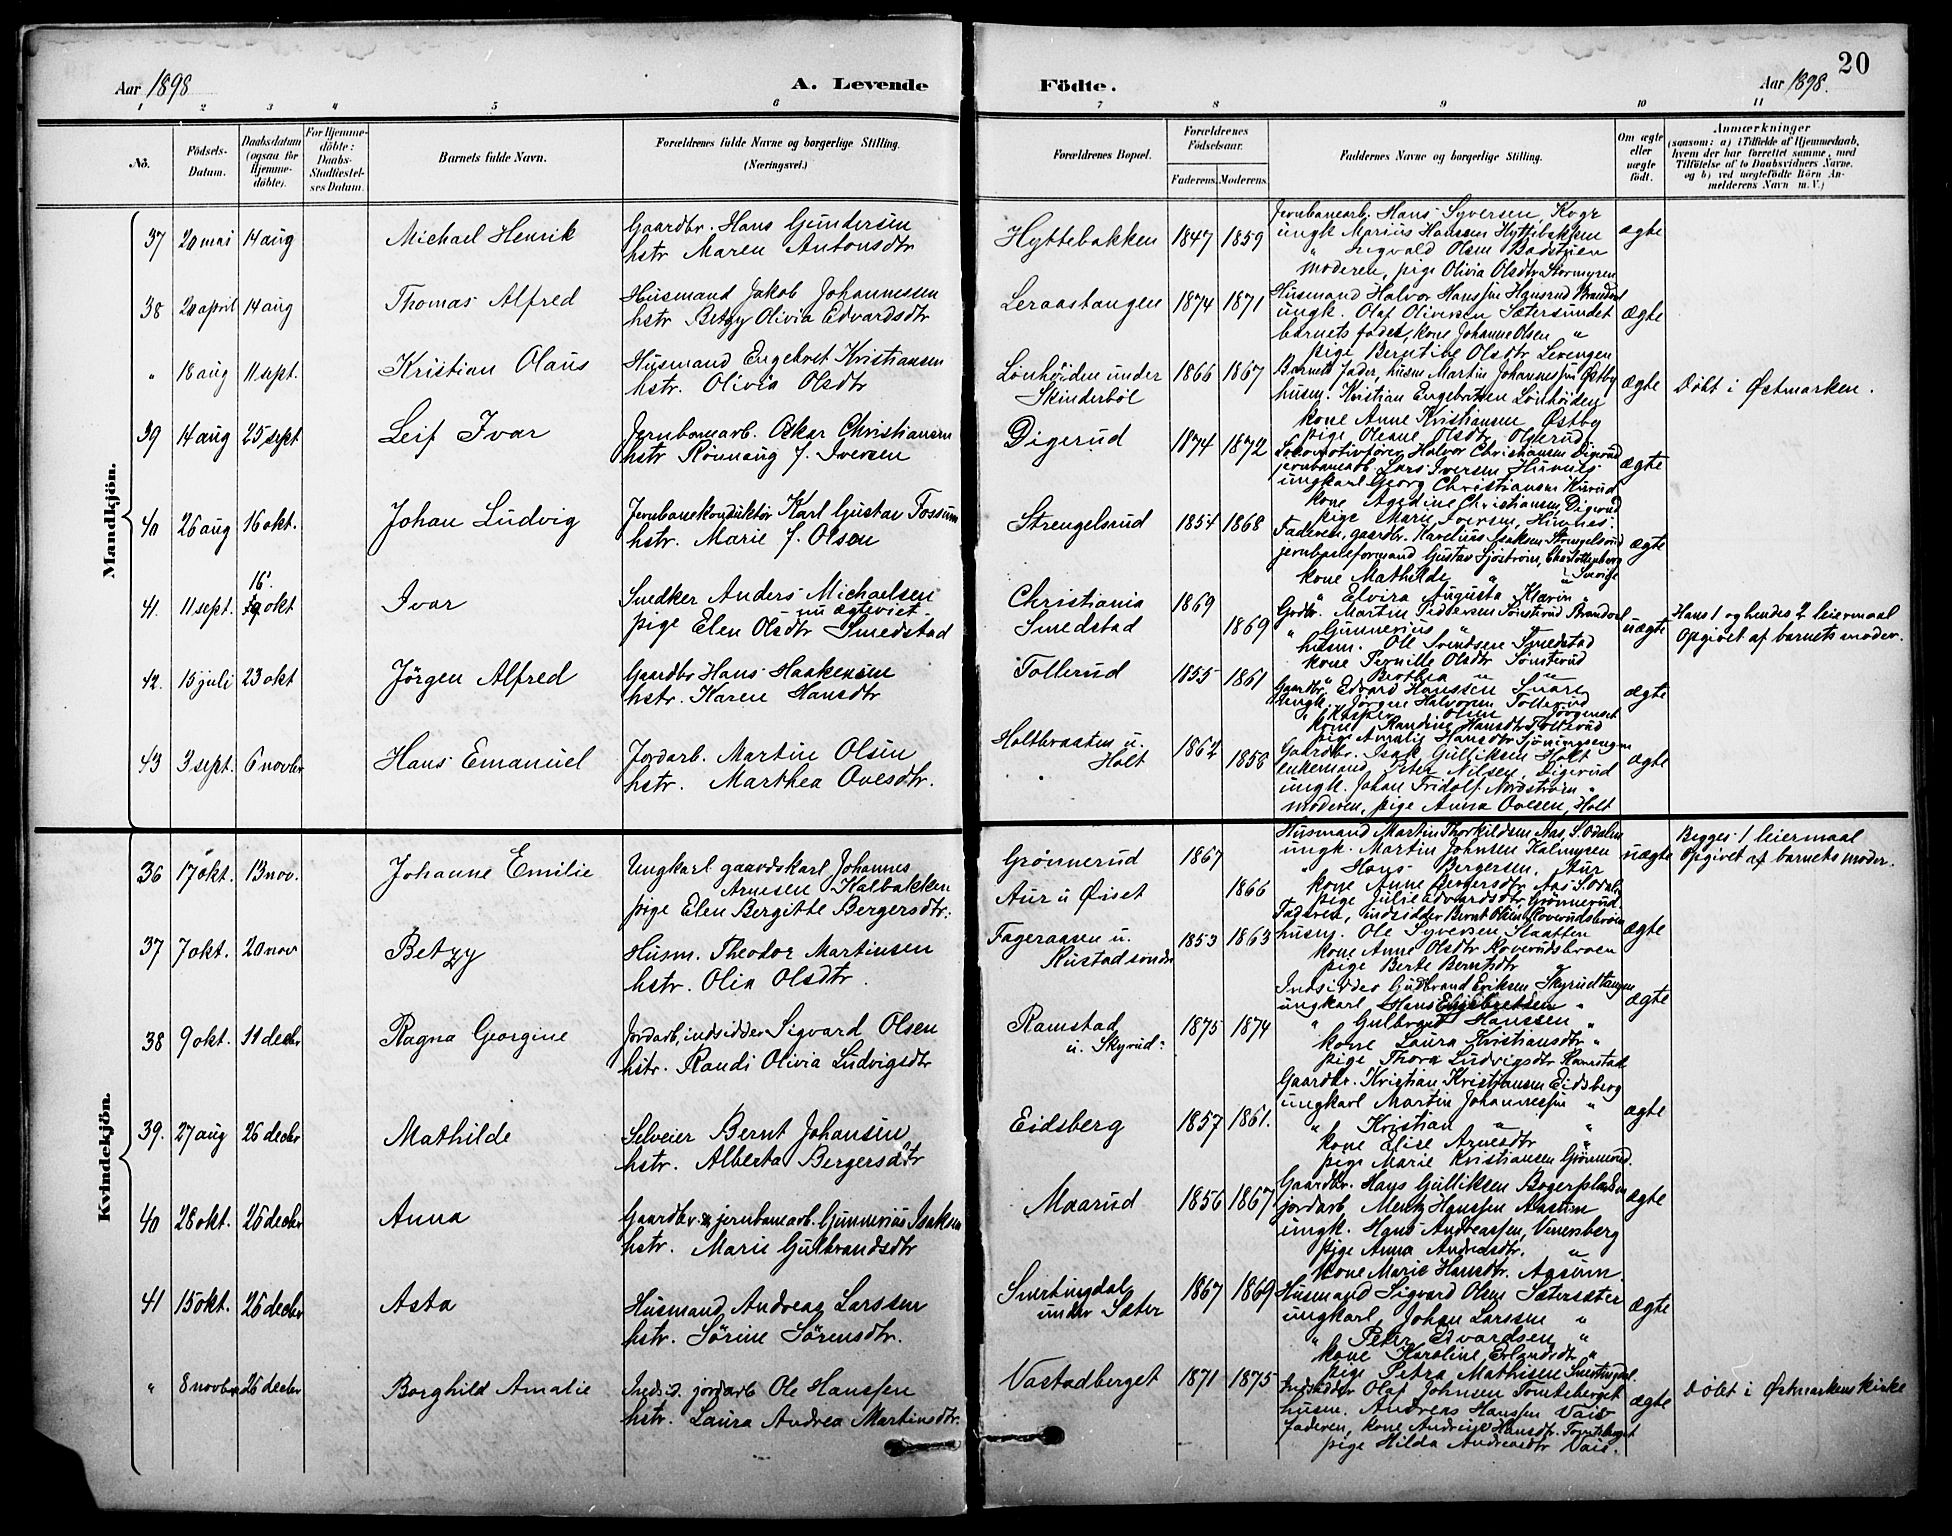 20
Aar 1898
A. Levende
Födte.
Aar 1898.
1 2 3 4 5 6 7 8 9 10 11
No.
Födsels-Datum.
Daabsdatum (ogsaa för Hjemme-döbte).
For Hjemme-döbte: Daabs-Stadfæstel-ses Datum.
Barnets fulde Navn.
Forældrenes fulde Navne og borgerlige Stilling.
(Næringsvei.)
Forældrenes Bopæl.
Forældrenes Födselsaar.
Faderens. Moderens.
Faddernes Navne og borgerlige Stilling.
Om ægte eller uægte födt.
Anmærkninger
(saasom: a) i Tilfælde af Hjemmedaab, hvem der har forrettet samme, med Tilföielse af to Daabsvidners Navne. og b) ved uægtefödte Börn An-melderens Navn m. V.)
Mandkjön.
37 20 mai 14 aug Michael Henrik
Gaardbr. Hans Gundersen
hstr Maren Antonsdtr
Hyttebakken 1847 1859
Jernbanearb. Hans Syversen, Kogr
ungk Marius Hanssen Hyttebakken
" Sigvald Olsen Badstuen
moderen, pige Olivia Olsdtr Stormyren
ægte
38 20 april 14 aug Thomas Alfred
Husmand Jakob Johannessen
hstr Betzy Olivia Edvardsdtr
Leraastangen 1874 1871
Husmand Halvor Hanssen Hansrud Brandval
ungk. Olaf Oliversen Sætersundet
barnets fader, kone Johanne Olsen "
pige Berntine Olsdtr Levengen
ægte
" 18 aug 11 sept. Kristian Olaus
Husmand Engebret Kristiansen
hstr. Olivia Olsdtr
Lönhöiden under Skinderböl 1866 1867
Barnets fader, husm Martin Johannessen Østby
husm. Kristian Engebretsen Lönhöiden
kone Anne Kristiansen Østby
pige Oleane Olsdtr Ollerud
ægte
Döbt i Østmarken.
39 14 aug 25 sept Leif Ivar
Jernbanearb. Oskar Christiansen
hstr Rönnaug f. Iversen
Digerud 1874 1872
Lokomotivförer Halvor Christiansen Digerud
jernbanearb. Lars Iversen Hurnes
ungkarl Georg Christiansen Kirud
kone Agedine Christiansen, Digerud
pige Marie Iversen, Hurnes.
ægte
40 26 aug 16 okt. Johan Ludvig
Jernbanekonduktör Karl Gustav Fossum
hstr. Marie f. Olsen
Strengelsrud 1854 1868
Faderen, gaardbr. Karelius Isaksen Strengelsrud
jernbaneformand Gustav Sjöström, Charlottenberg
kone Mathilde " " Sverige
" Elvira Augusta Klarin "
ægte
41. 11 sept. 16. okt Ivar
Snedker Anders Michaelsen
nu ægteviet
pige Elen Olsdtr Smedstad
Christiania 1869
Smedstad 1869
Grdbr. Martin Pettersen Sönsterud Brandval
" Gunnerius "
husm. Ole Svendsen Smedstad
kone Pernille Olsdtr Sönsterud
" Brothea " "
uægte
Hans 1 og hendes 2 leiermaal
Opgivet af barnets moder.
42. 15 juli 23 okt Jörgen Alfred
Gaardbr Hans Haakensen
hstr. Karen Hansdtr
Tollerud 1855 1861
Gaardbr. Edvard Hanssen Snare
ungk. Jörgen Halvorsen Tollerud
" Kasper Olsen Jörgenset
kone Randine Hansdtr Tollerud
pige Amalie Hansdtr Sjöningsengen
ægte
43 3 sept. 6 novbr Hans Emanuel
Jordarb. Martin Olsen
hstr. Marthea Ovesdtr.
Holtbraaten u. Holt 1862 1856
Gaardbr. Isak Gulliksen Holt
enkemand Peter Nilsen, Digerud
ungk. Johan Fridolf Nordström "
moderen, pige Anna Ovesen, Holt
ægte
Kvindekjön.
36 17 okt. 13 nov. Johanne Emilie
Ungkarl gaardskarl Johannes
Arnesen Kalbakken
pige Elen Bergitte Bergersdtr.
Grönnerud 1867
Aur u Øiset 1866
Husmand Martin Thorkildsen Aas, S. Odalen
ungk. Martin Johnsen Kalmyren
" Hans Bergersen, Aur
kone Anne Bergersdtr, Aas S. Odal
pige Julie Edvardsdtr Grönnerud.
uægte
Begges 1 leiermaal
Opgivet af barnets moder.
37 7 okt. 20 nov Betzy
Husm. Theodor Martinsen
hstr. Olia Olsdtr
Fageraasen u. Rustad söndre 1853 1863
Faderen, indsidder Bernt Olsen Roverudsbroen
husm. Ole Syversen Slaatten
kone Anne Olsdtr Roverudsbroen
pige Berte Berntsdtr "
ægte
38 9 okt. 11 decbr Ragna Georgine
Jordarb, indsidder Sigvard Olsen
hstr. Randi Olivia Ludvigsdtr
Ramstad u. Skyrud 1875 1874
Indsidder Gudbrand Eriksen Skyrudtangen
ungkarl Hans Engebretsen "
" Gulbrand Hanssen "
kone Laura Kristiansdtr "
pige Thora Ludvigsdtr Ramstad
ægte
39. 27 aug 26 decbr Mathilde
Selveier Bernt Johansen
hstr. Alberta Bergersdtr
Eidsberg 1857 1861.
Gaardbr. Kristian Kristiansen Eidsberg
ungkarl Martin Johannessen "
" Kristian " "
kone Elise Arnesdtr "
pige Marie Kristiansen Grönnerud.
ægte
40 28 okt. 26 decbr Anna
Gaardbr & jernbanearb. Gunnerius Isaksen
hstr. Marie Gulbrandsdtr
Maarud 1856 1867
Gaardbr. Hans Gulliksen Bogerpladsen
jordarb Mentz Hanssen Aasum
ungk. Hans Andreassen, Vennsberg
pige Anna Andreasdtr. "
kone Marie Hansdtr. Agsum.
ægte
41 15 okt. 26 decbr Asta
Husmand Andreas Larssen
hstr. Sörine Sörensdtr.
Smertingdal under Sæter 1867 1869
Husmand Sigvard Olsen Sætersæter
ungkarl, Johan Larssen "
" Peter Edvardsen "
kone Karoline Erlandsdtr "
pige Petra Mathisen Smertingdal.
ægte
" 8 novbr 26 decbr Borghild Amalie
Indsid. jordarb Ole Hanssen
hstr. Laura Andrea Martinsdtr.
Vastadberget 1871 1875
Indsidder Olaf Johnsen Tomteberget
husm. Andreas Hanssen Vais
faderen, kone Andrine Hansdtr. Tomteberget
pige Hilda Andreasdtr Vais.
ægte
Döbt i Østmarkens kirke